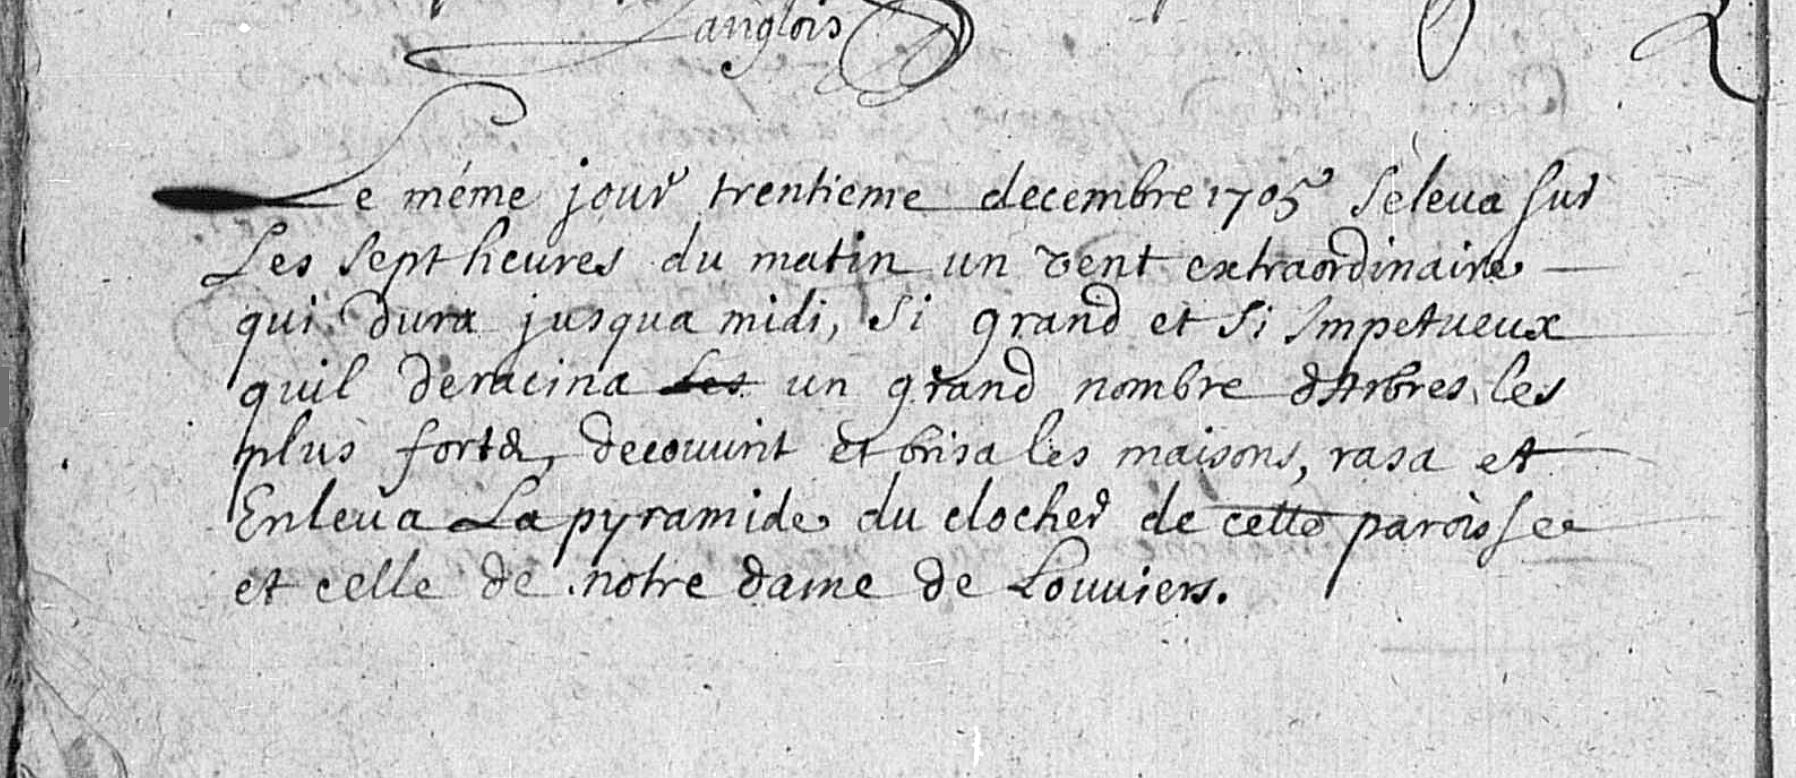 Langlois
Le méme jour trentieme decembre 1705 séleua sur
Les sept heures du matin un vent extraordinaire
qui dura jusqua midi, si grand et si impetueux
quil deracina les un grand nombre dArbres les
plus forts, decouurit et brisa les maisons, rasa et
Enleua La pyramide du clocher de cette paroisse
et celle de notre dame de Louuiers.